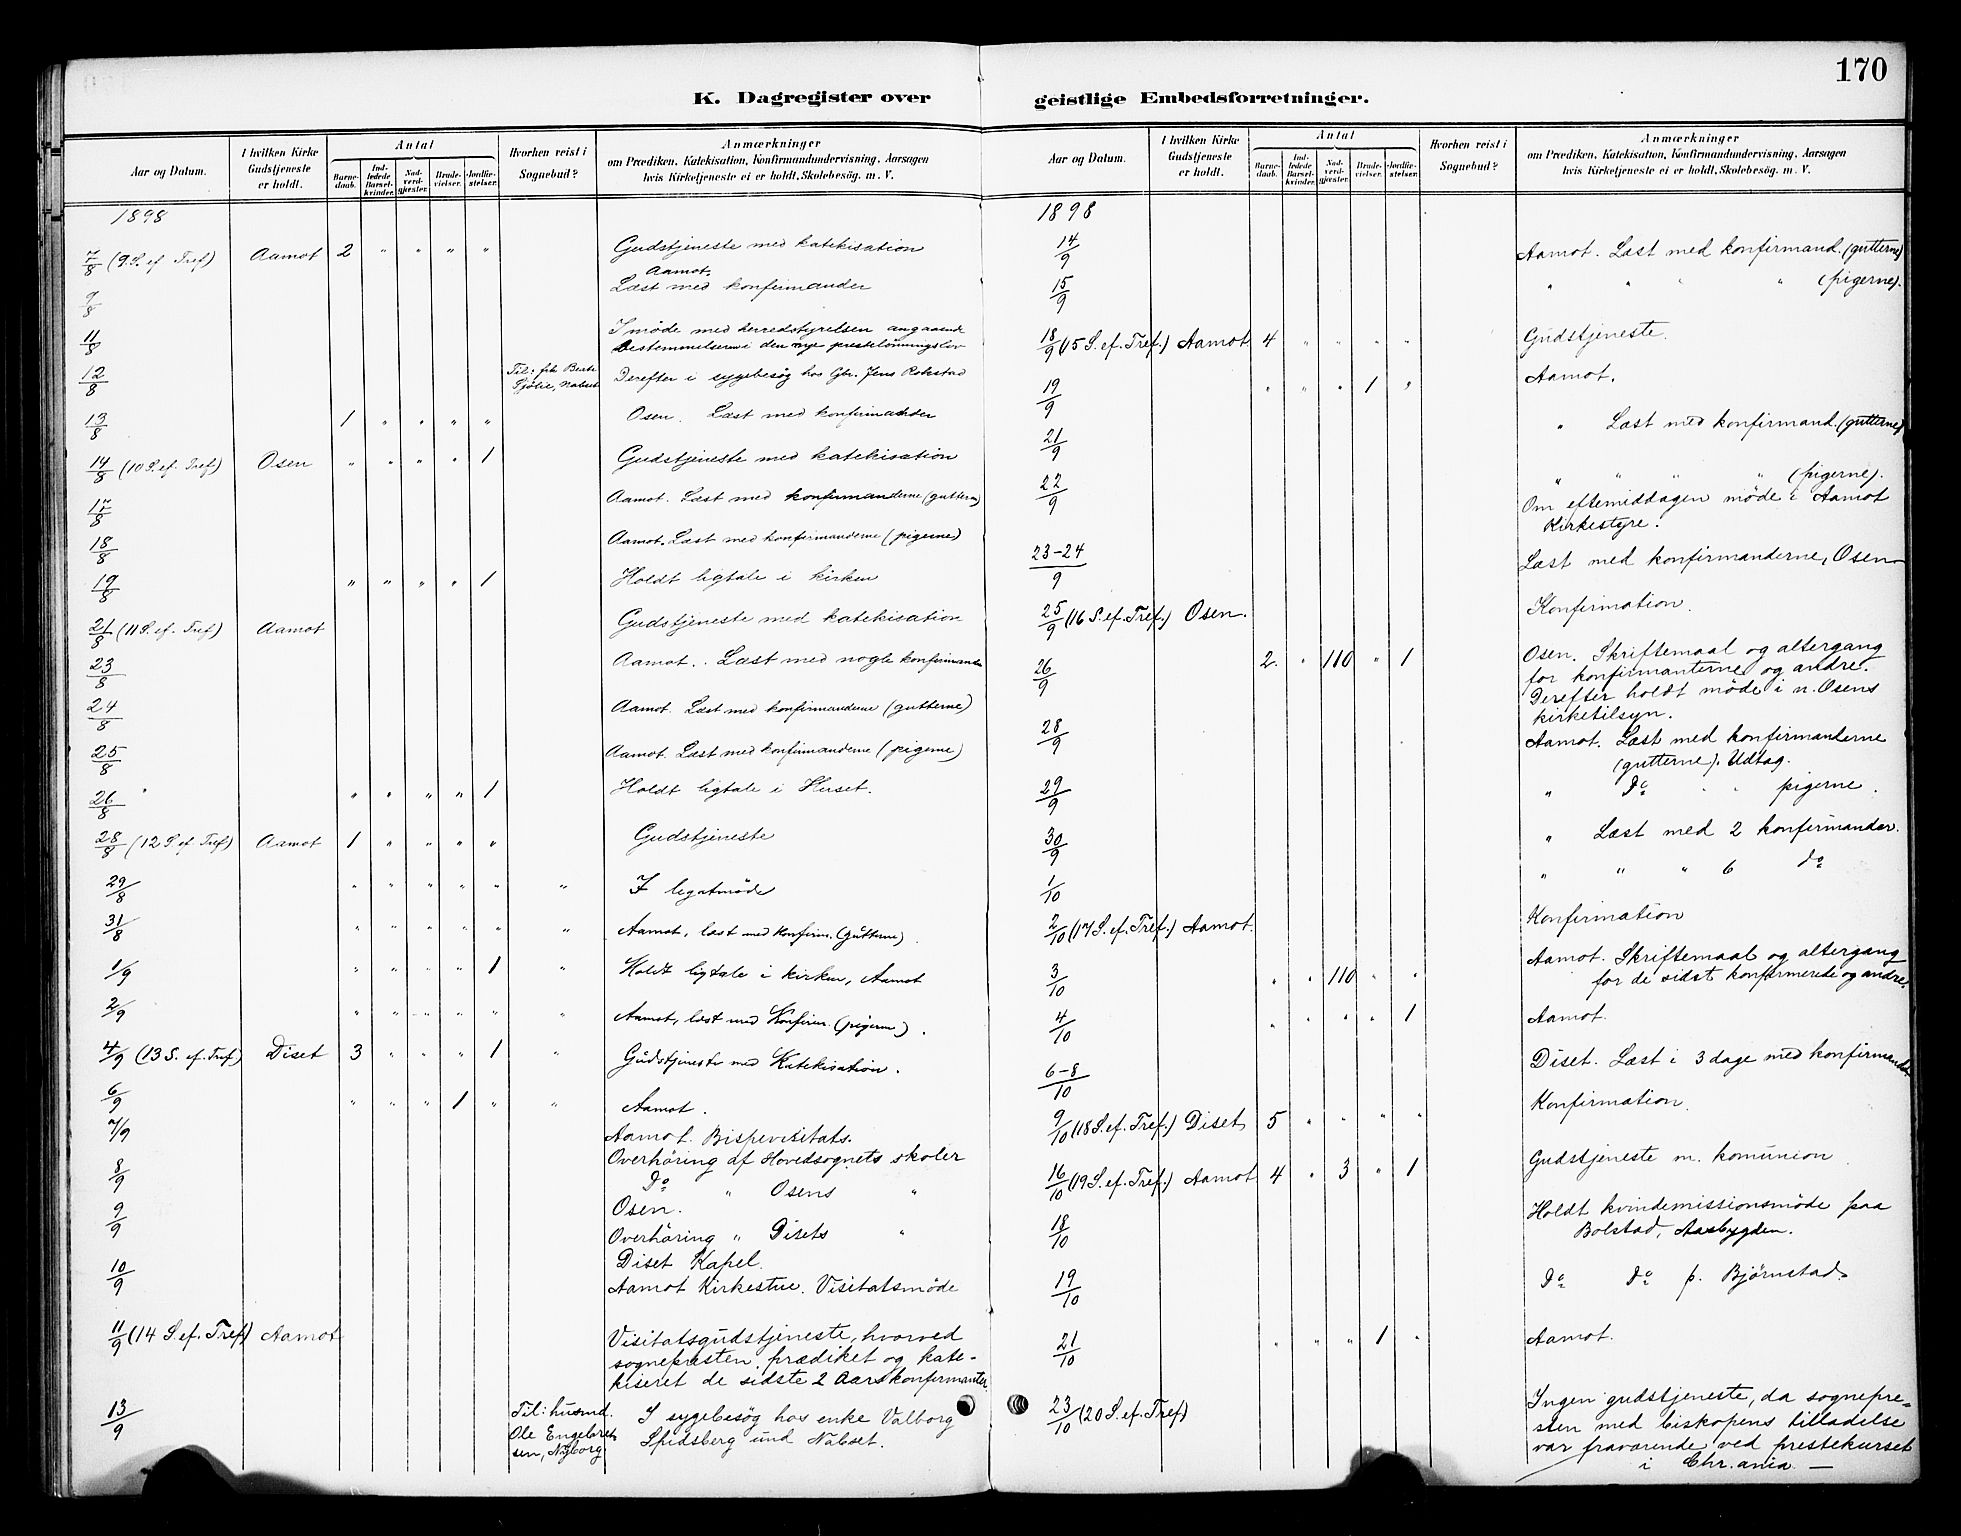 170
K. Dagregister over geistlige Embedsforretninger.
Aar og Datum. I hvilken Kirke Gudstjeneste er holdt. Antal Barnedaab. Indledede Barselkvinder. Nadverdgjester. Brudevielser. Jordfæstelser. Hvorhen reist i Sognebud? Anmærkninger om Prædiken, Katekisation, Konfirmandundervisning, Aarsagen hvis Kirketjeneste ei er holdt, Skolebesøg. m. V.
1898
7/8 (9 S. ef Tref) Aamot 2 " " " " Gudstjeneste med katekisation
9/8 Aamot. Læst med konfirmander
11/8 I møde med herredstyrelsen angaaende
bestemmelserne i den nye prestelønningslov
12/8 Derefter i sygebesøg hos Gbr. Jens Rokstad
13/8 1 " " " " Osen. Læst med konfirmander
14/8 (10 S. ef. Tref) Osen " " " " 1 Gudstjeneste med katekisation
17/8 Aamot. Læst med konfirmanderne (guttern)
18/8 Aamot. Læst med konfirmanderne (pigerne)
19/8 " " " " 1 Holdt ligtale i kirken
21/8 (11 S. ef. Tref) Aamot Gudstjeneste med katekisation
23/8 Aamot. Læst med nogle konfirmander
24/8 Aamot. Læst med konfirmanderne (gutterne)
25/8 Aamot. Læst med konfirmanderne (pigerne)
26/8 " " " " 1 Holdt ligtale i Herset.
28/8 (12 S. ef Tref) Aamot 1 " " " " Gudstjeneste
29/8 " " " " " " I legatmøde
31/8 " " " " " " Aamot, læst med Konfirm. (gutterne).
1/9 " " " " 1 " Holdt ligtale i kirken, Aamot
2/9 " " " " " " Aamot, læst med Konfirm. (pigerne).
4/9 (13 S. ef. Tref) Diset 3 " " " 1 " Gudstjeneste med Katekisation.
6/9 " " " 1 " " Aamot.
7/9 Aamot. Bispevisitats.
Overhøring af Hovedsognets skoler
8/9 Do " Osens "
9/9 Osen.
Overhøring " Disets "
Diset Kapel.
10/9 Aamot Kirkestue. Visitatsmøde
11/9 (14 S. ef. Tref) Aamot Visitatsgudstjeneste, hvorved
sognepresten prædiket og kate-
kiseret de sidste 2 Aars konfirmanter
13/9 Til: husmd. Ole Engebretsen, Nyborg I sygebesøg hos enke Valborg
Spidsberg und Nabset.
Aar og Datum. I hvilken Kirke Gudstjeneste er holdt. Antal Barnedaab. Indledede Barselkvinder. Nadverdgjester. Brudevielser. Jordfæstelser. Hvorhen reist i Sognebud? Anmærkninger om Prædiken, Katekisation, Konfirmandundervisning, Aarsagen hvis Kirketjeneste ei er holdt, Skolebesøg. m. V.
1898
14/9 Aamot. Læst med konfirmand. (gutterne)
15/9 " " " " (pigerne).
18/9 (15 S. ef. Tref.) Aamot 4 " " " " Gudstjeneste.
19/9 " " " 1 " Aamot.
21/9 " Læst med konfirmand. (gutterne)
22/9 " " " " (pigerne).
Om eftemiddagen møde i Aamot
Kirkestyre.
23-24/9 Læst med konfirmanderne, Osen
25/9 (16 S. ef. Tref.) Osen. Konfirmation.
26/9 2. " 110 " 1 Osen. Skriftemaal og altergang
for konfirmanterne og andre.
Derefter holdt møde i n. Osens
kirketilsyn.
28/9 Aamot. Læst med konfirmanderne
(gutterne). Udtag.
29/9 " Do " " pigerne.
30/9 " Læst med 2 konfirmander.
1/10 " " " 6 do
2/10 (17 S. ef. Tref.) Aamot. Konfirmation
3/10 " " 110 " " Aamot. Skriftemaal og altergang
for de sidst konfirmerede og andre.
4/10 " " " " 1 Aamot.
6-8/10 Diset. Læst i 3 dage med konfirmander
9/10 (18 S. ef. Tref.) Diset 5 " " " " Konfirmation.
16/10 (19 S. ef. Tref.) Aamot 4 " 3 " 1 Gudstjeneste m. komunion
18/10 Holdt kvindemissionsmøde paa
Bolstad, Aasbygden.
19/10 Do Do p. Bjørnstad
21/10 " " " 1 " Aamot.
23/10 (20 S. ef. Tref) Ingen gudstjeneste, da sognepre-
sten med biskopens tilladelse
var fraværende ved prestekurset
i Chr.ania —